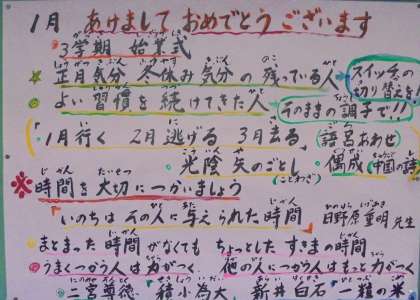 1月 あけまして おめでとう ございます
3学期 始業式
☆ 正月気分 冬休み気分の残っている人 スイッチの切り替えを!!
◎ よい習慣を続けてきた人 そのままの調子で!!
「1月行く 2月逃げる 3月去る」 語呂あわせ
光陰矢のごとし (ことわざ) ・偶成 (中国の詩)
※時間を大切につかいましょう
「いのちはその人に与えられた時間」 日野原重明先生
まとまった時間がなくても ちょっとしたすきまの時間
◎うまくつかう人は力がつく 他の人につかう人はもっと力がつく
二宮尊徳 積小為大 新井白石 一粒の米